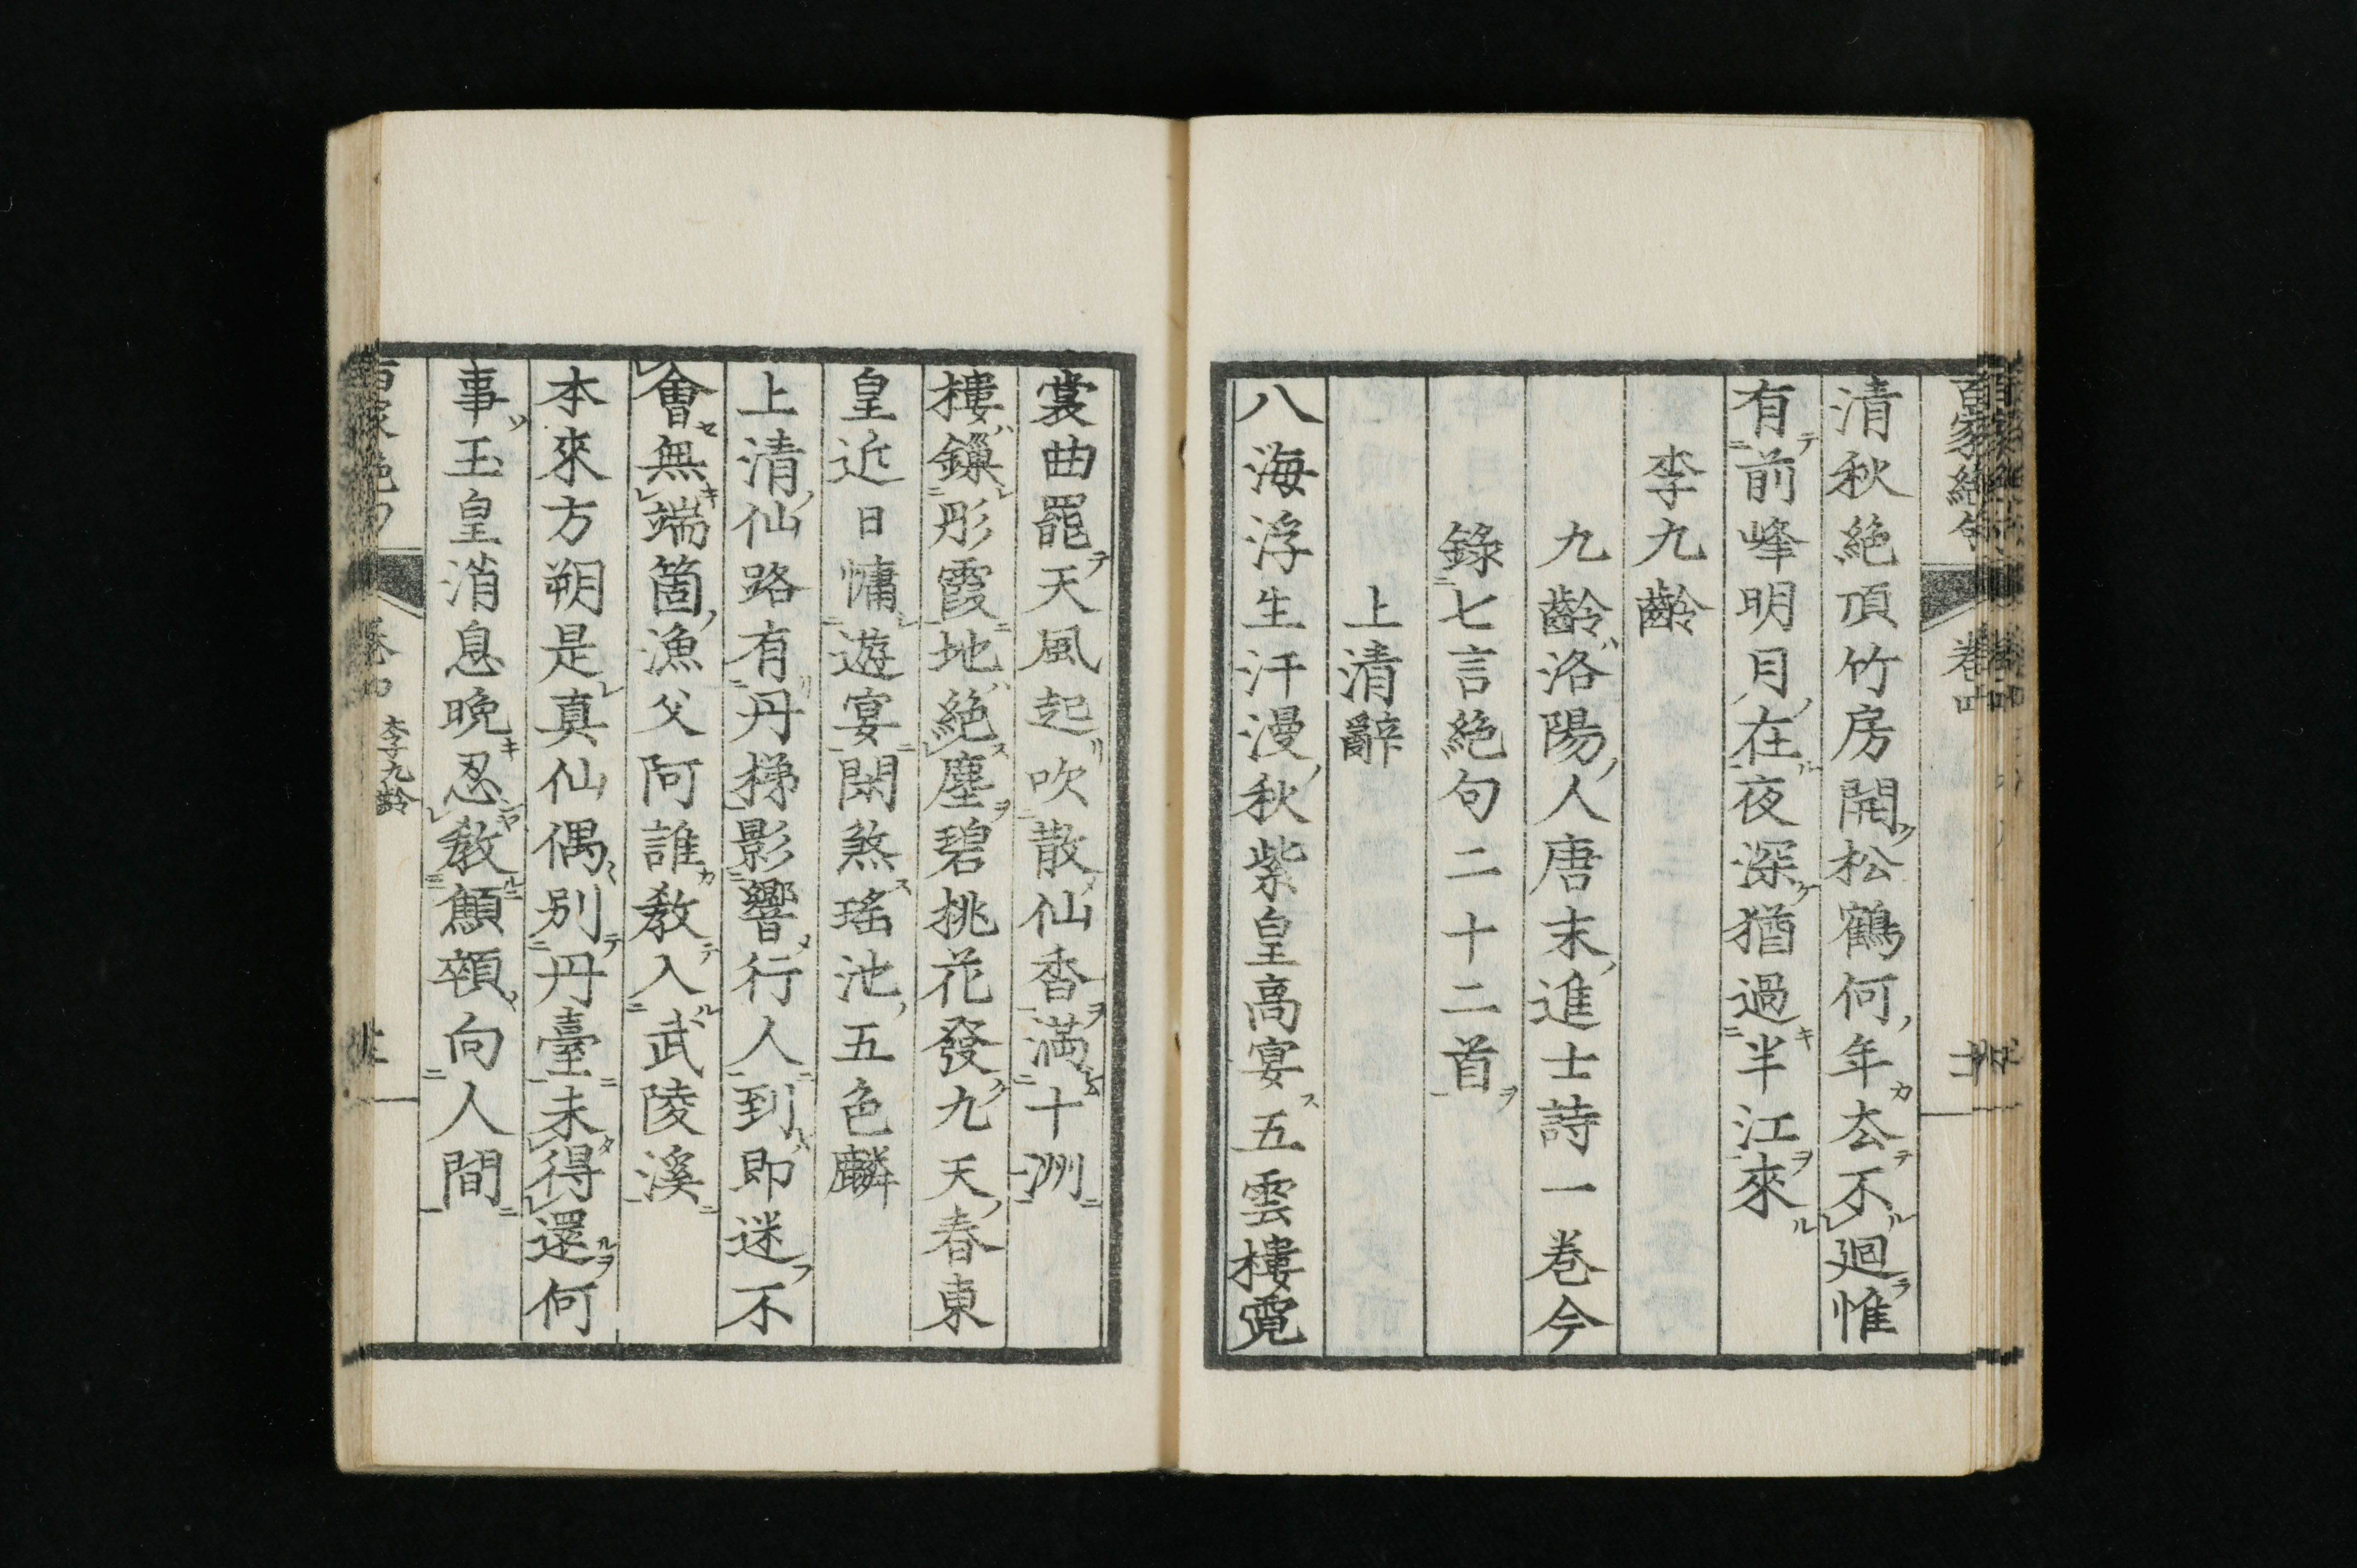 百家絶句 卷四
清秋絶頂竹房開松鶴何年去不廻惟
有前峰明月在夜深猶過半江來
李九齡
九齡洛陽人唐末進士詩一卷今
錄七言絶句二十二首
上清辭
八海浮生汗漫秋紫皇高宴五雲樓霓
裳曲罷天風起吹散仙香滿十洲
樓鏁彤霞地絶塵碧桃花發九天春東
皇近日慵遊宴閑煞瑤池五色麟
上清仙路有丹梯影響行人到即迷不
會無端箇漁父阿誰教入武陵溪
本來方朔是真仙偶別丹臺未得還何
事玉皇消息晚忍教顦顇向人間
百家絶句 卷四 李九齡